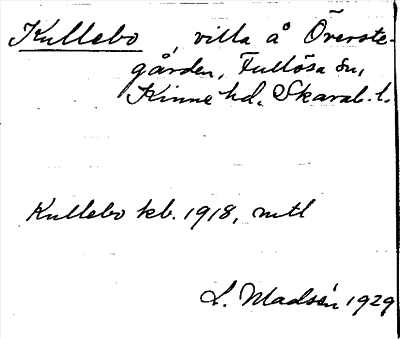 Kullebo, villa å Överste-
gården, Fullösa sn,
Kinne hd, Skarab. l.
Kullebo kb. 1918, mtl
L. Madsén 1929